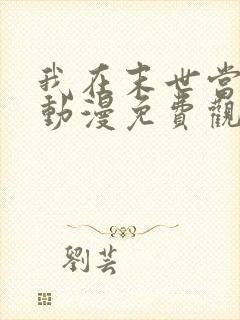 我在末世當
動漫免費觀
劉芸